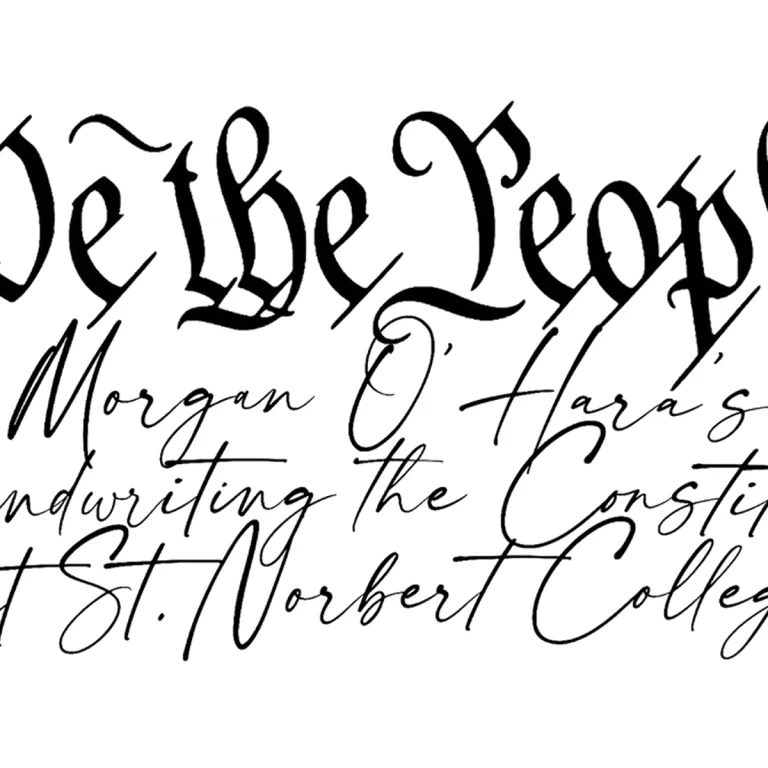 We the People
Morgan O'Hara's
Handwriting the Constitution
at St. Norbert College